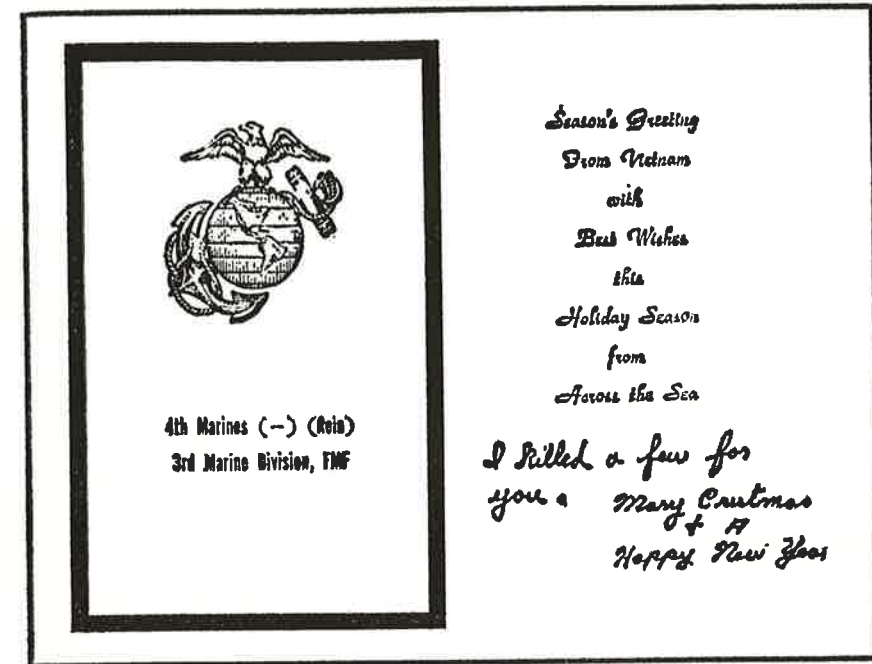 4th Marines (--) (Rein)
3rd Marine Division, FMF
Season's Greeting
From Vietnam
with
Best Wishes
this
Holiday Season
from
Across the Sea
I killed a few for
you a Mary Crutmas
+ A
Happy New Year